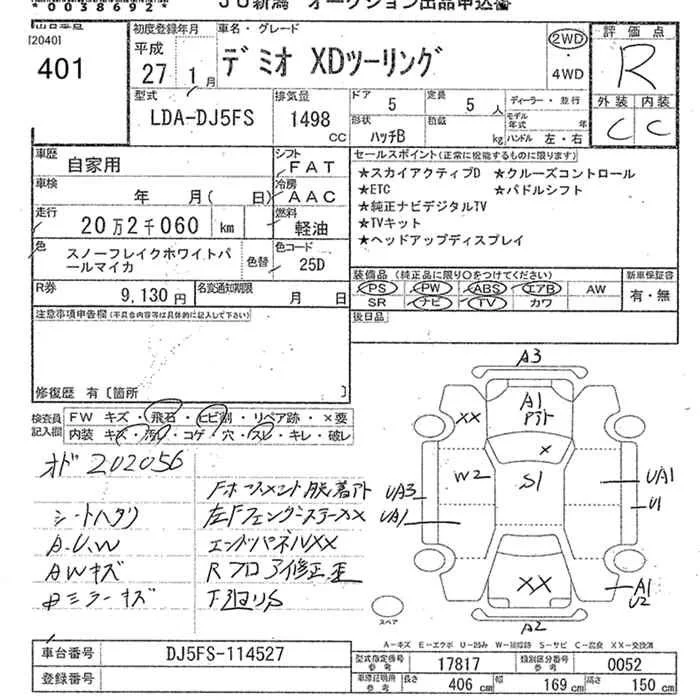 *0038692*
JU新潟 オークション出品申込書
[2040]
401
初度登録年月
平成
27 1月
車名・グレード
デミオ XDツーリング
2WD
・
4WD
評価点
R
外装 内装
C C
型式
LDA-DJ5FS
排気量
1498 CC
ドア 5
定員 5 人
形状 ハッチB
積載 kg
ディーラー・並行
モデル年式 年
ハンドル 左・右
車歴 自家用
シフト FAT
車検 年 月( 日)
冷房 AAC
走行 20万2千060 km
燃料 軽油
色 スノーフレイクホワイトパールマイカ
色替
色コード 25D
R券 9,130円
名変通知期限 月 日
セールスポイント(正常に機能するものに限ります)
★スカイアクティブD ★クルーズコントロール
★ETC ★パドルシフト
★純正ナビデジタルTV
★TVキット
★ヘッドアップディスプレイ
装備品 (純正品に限り○をつけてください)
PS PW ABS エアB AW
SR ナビ TV カワ
新車保証書
有・無
後日品
注意事項申告欄(不具合内容等は具体的に記入して下さい)
修復歴 有〔箇所 〕
検査員記入欄
FW キズ・飛石・ヒビ割・リペア跡・×要
内装 キズ・汚れ・コゲ・穴・スレ・キレ・破レ
オド 202056
シートヘタリ
A.U.W
AWキズ
左Fフェンダーステー××
エンドパネル××
Rフロア修正
下廻りS
A3
A1
××
×
W2
S1
UA3
UA1
UA1
U1
××
A1
U2
A2
スペア
A-キズ E-エクボ U-凹み W-補修跡 S-サビ C-腐食 XX-交換済
車台番号 DJ5FS-114527
登録番号
型式指定番号 参考 17817
類別区分番号 参考 0052
車庫証明用 参考 長さ 406 cm 幅 169 cm 高さ 150 cm